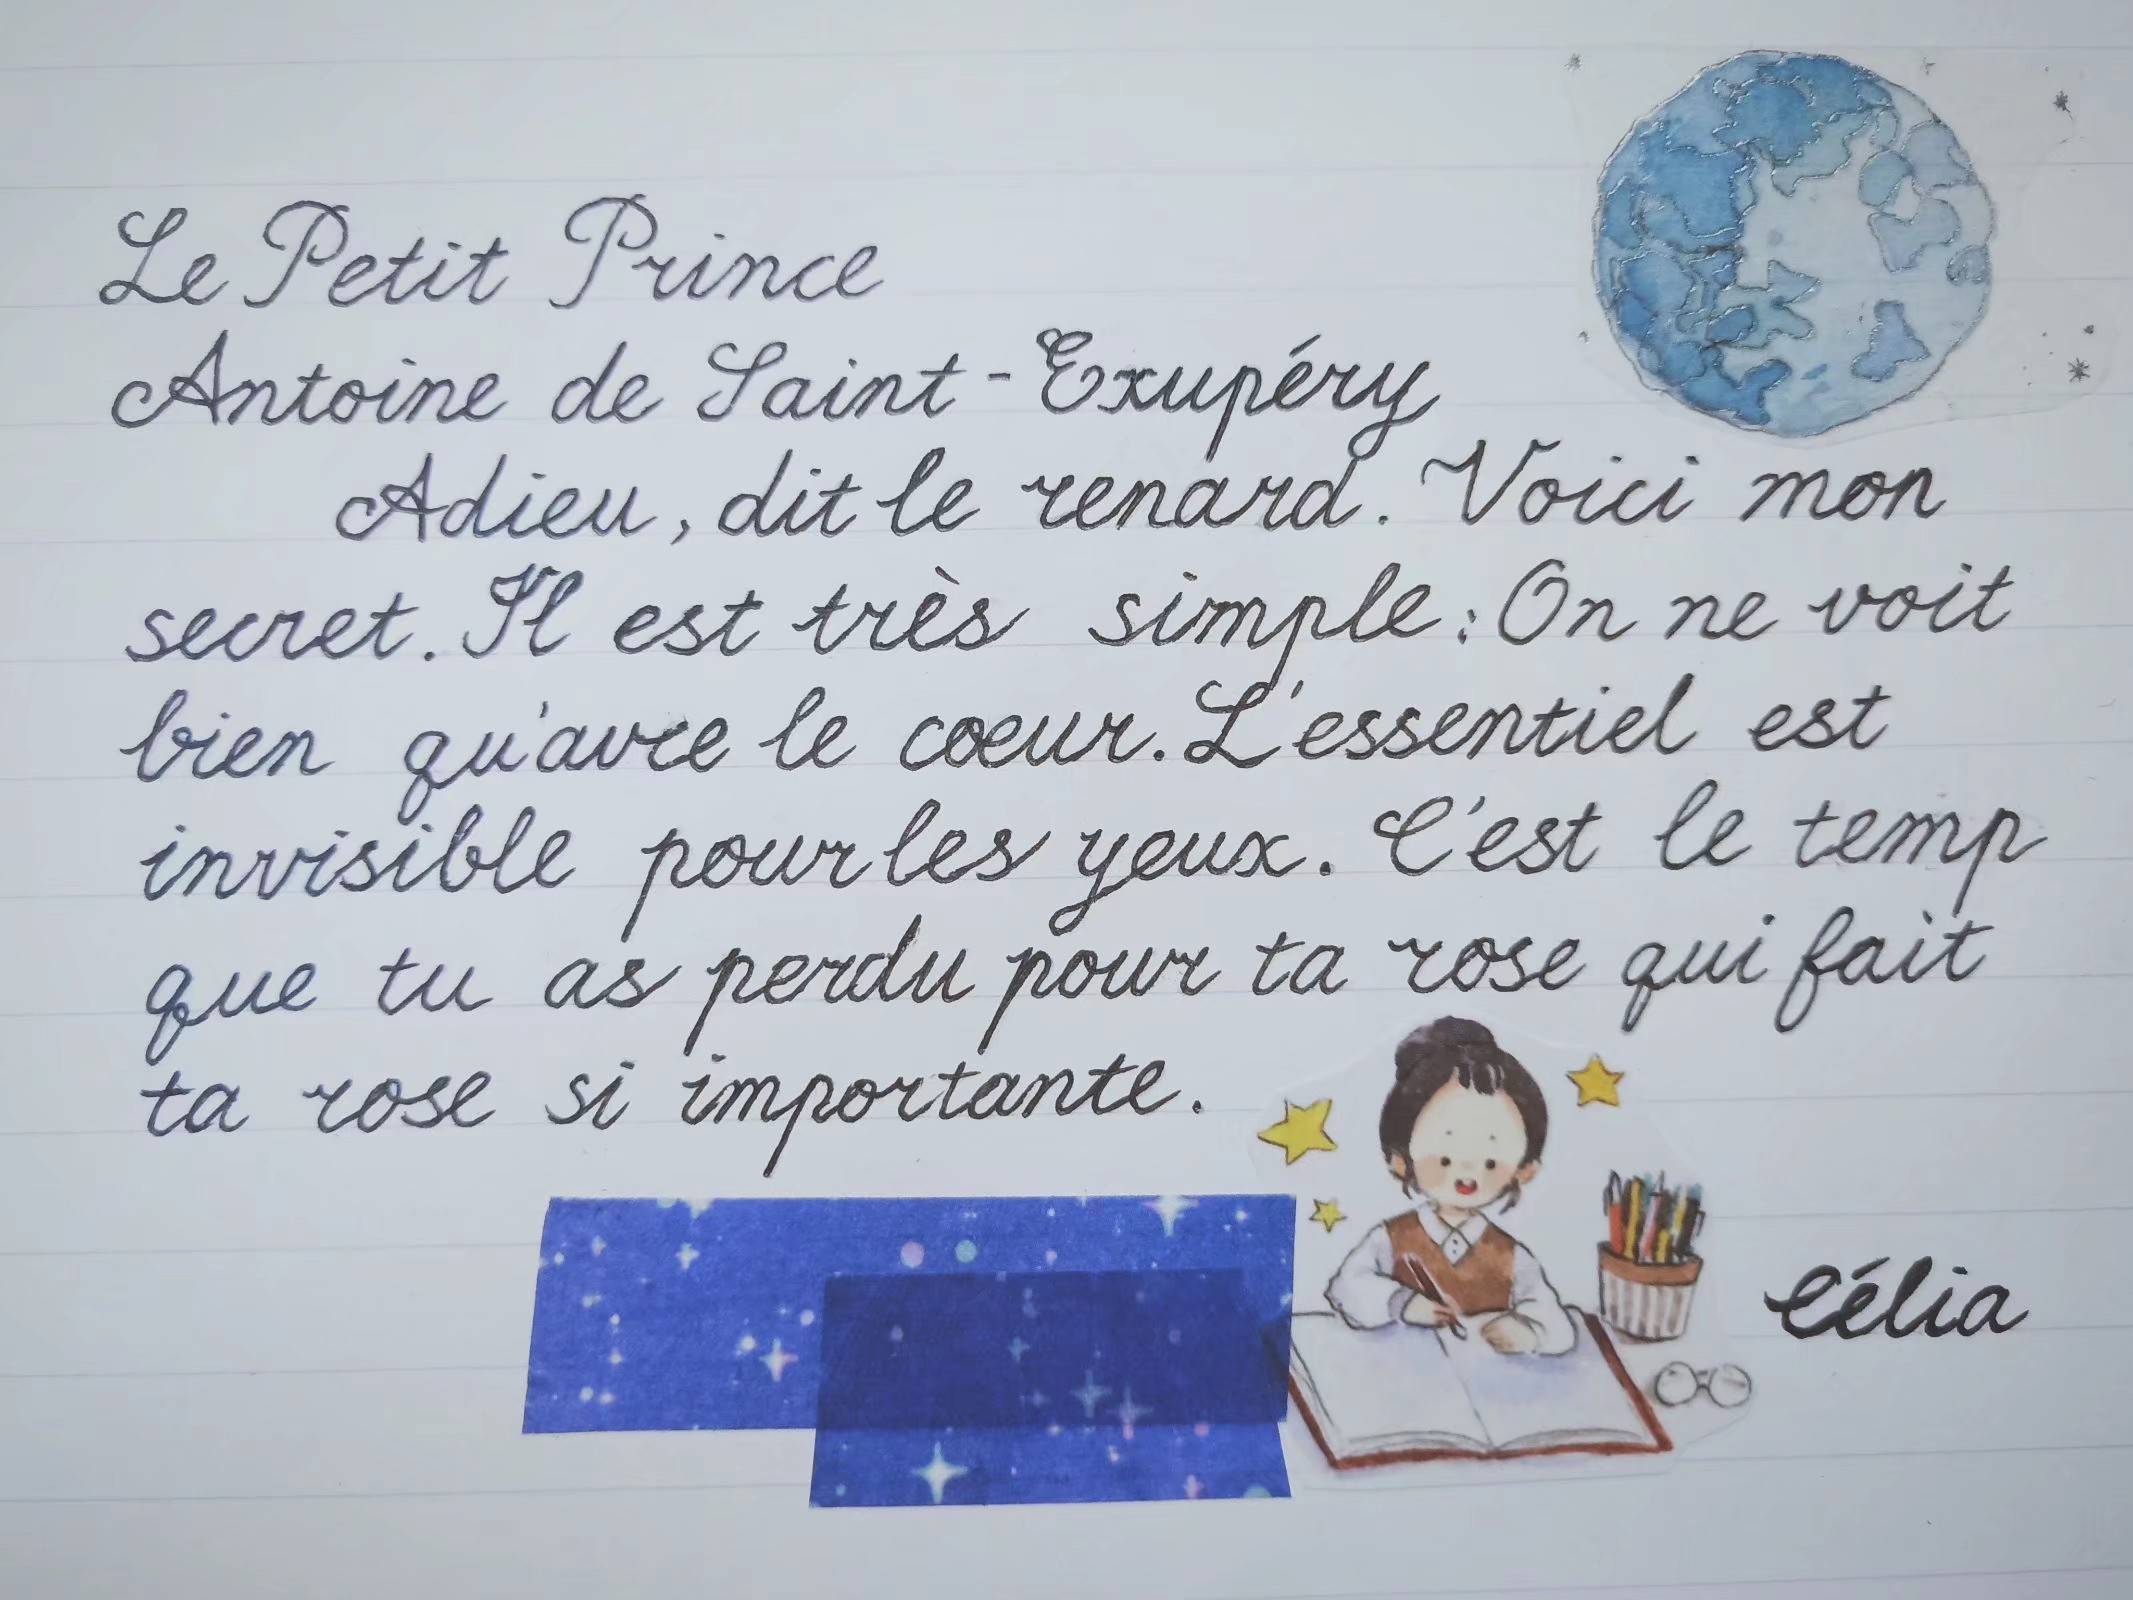 Le Petit Prince
Antoine de Saint-Exupéry
Adieu, dit le renard. Voici mon
secret. Il est très simple : On ne voit
bien qu'avce le coeur. L'essentiel est
invisible pour les yeux. C'est le temp
que tu as perdu pour ta rose qui fait
ta rose si importante.
Célia